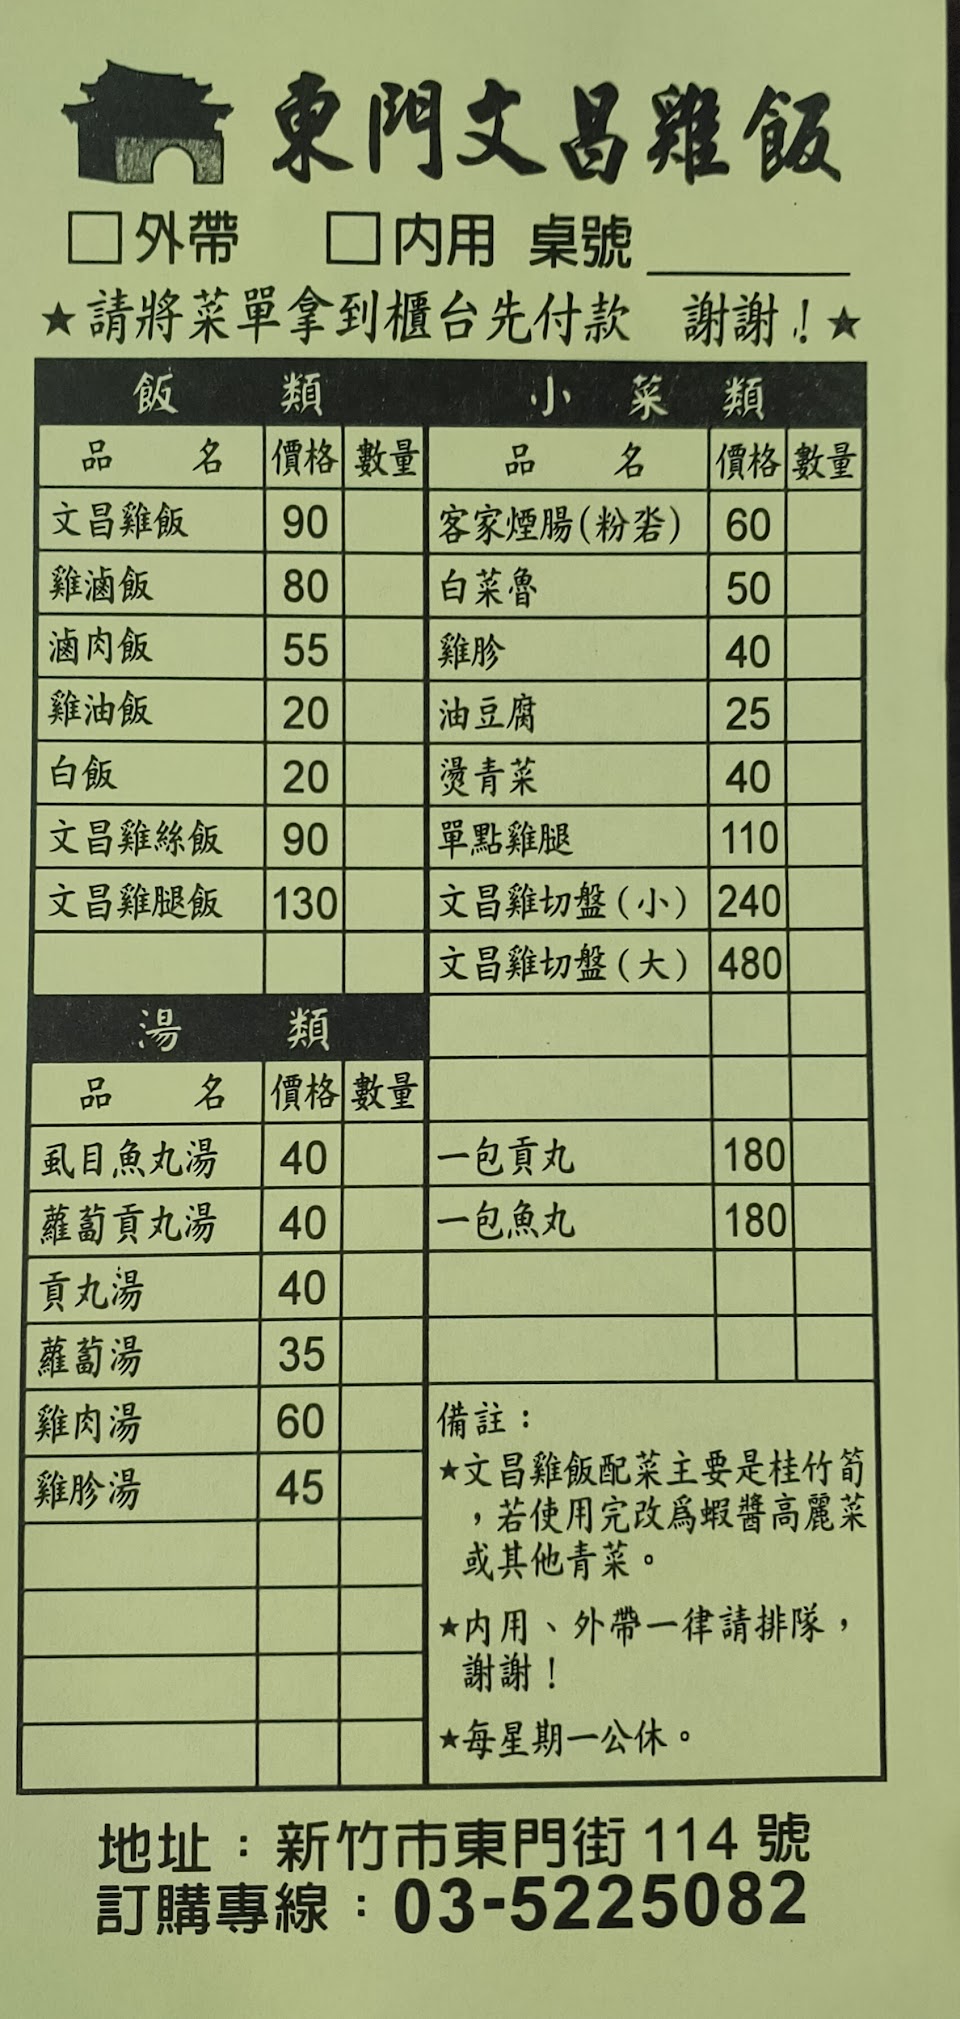 東門文昌雞飯
□外帶 □內用 桌號
★請將菜單拿到櫃台先付款 謝謝！★
飯類
品名 價格 數量
文昌雞飯 90
雞滷飯 80
滷肉飯 55
雞油飯 20
白飯 20
文昌雞絲飯 90
文昌雞腿飯 130
湯類
品名 價格 數量
虱目魚丸湯 40
蘿蔔貢丸湯 40
貢丸湯 40
蘿蔔湯 35
雞肉湯 60
雞胗湯 45
小菜類
品名 價格 數量
客家煙腸(粉砦) 60
白菜魯 50
雞胗 40
油豆腐 25
燙青菜 40
單點雞腿 110
文昌雞切盤(小) 240
文昌雞切盤(大) 480
一包貢丸 180
一包魚丸 180
備註：
★文昌雞飯配菜主要是桂竹筍
，若使用完改為蝦醬高麗菜
或其他青菜。
★內用、外帶一律請排隊，
謝謝！
★每星期一公休。
地址：新竹市東門街114號
訂購專線：03-5225082